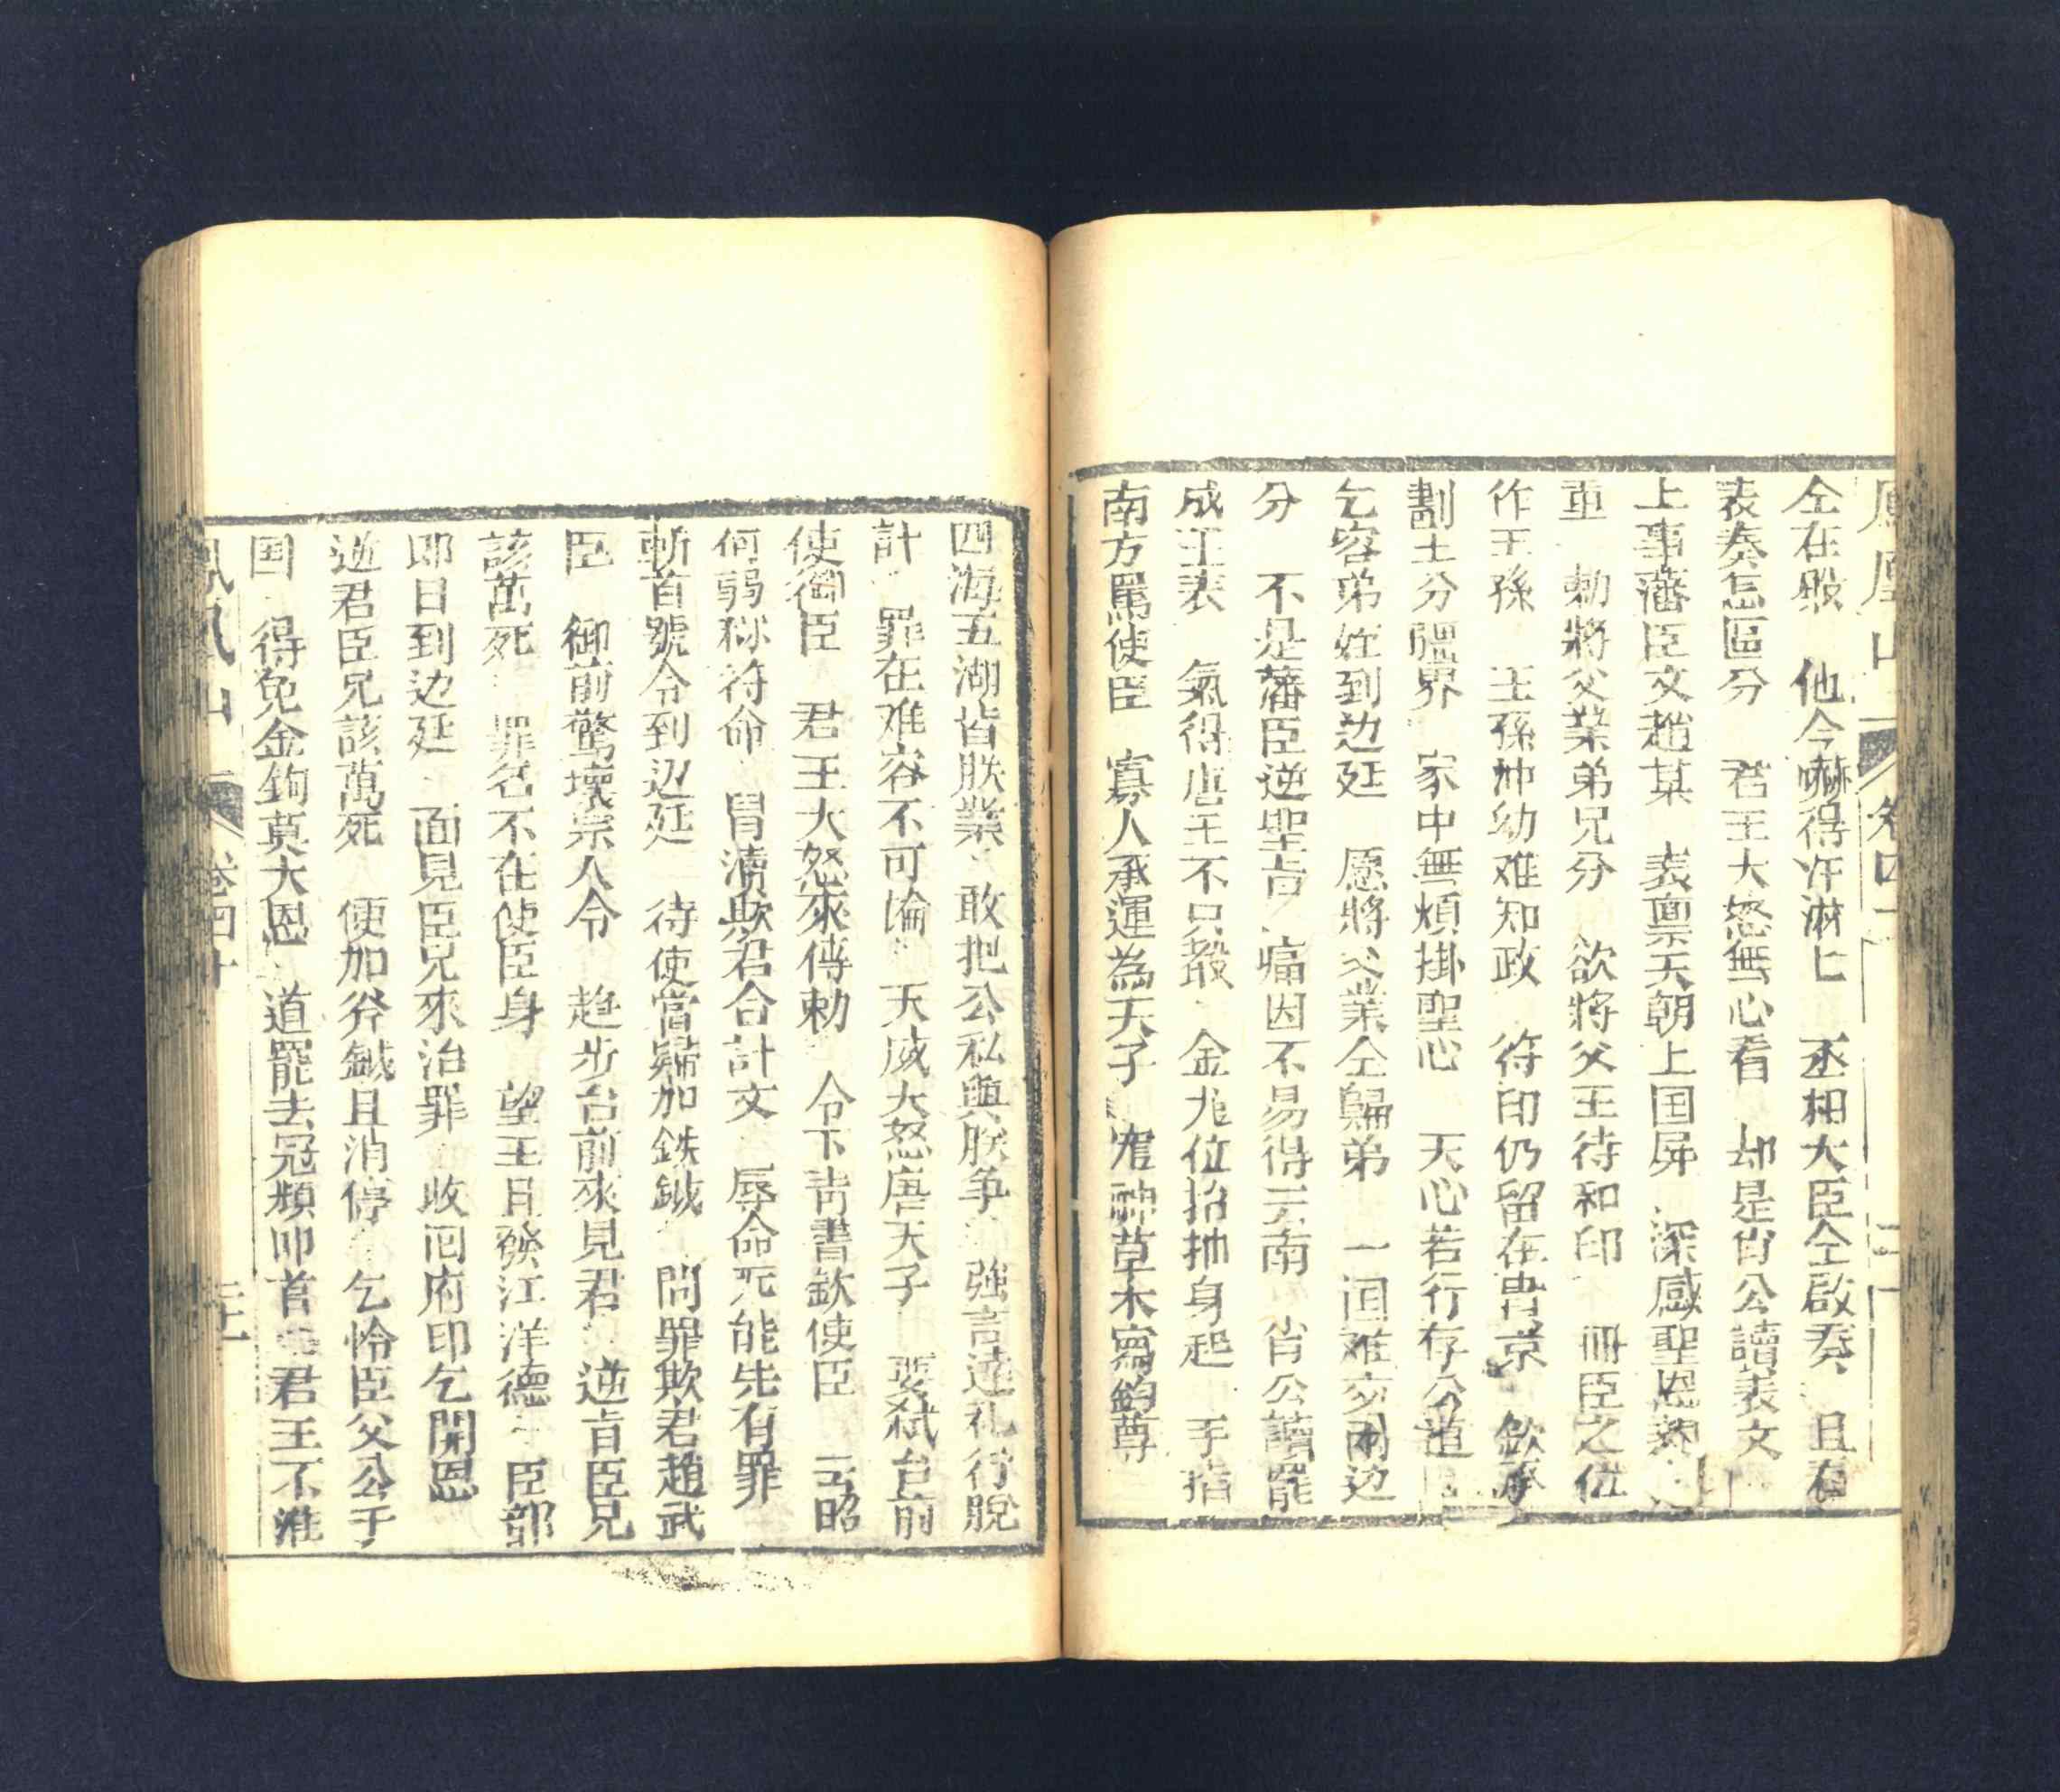 鳳凰山 卷四十
全在殿 他今嚇得汗淋匕 丞相大臣全啟奏 且看
表奏怎區分 君王大怒無心看 却是肖公讀表文
上事藩臣文趙某 表禀天朝上国屏 深感聖恩
重 勅將父業弟兄分 欲將父王待和印 冊臣之位
作王孫 王孫冲幼难知政 符印仍留在曹京 欽承
劃土分疆界 家中無煩掛聖心 天心若行存公道
乞容弟姪到边延 愿將父業仝歸弟 一囬难交兩边
分 不是藩臣逆聖旨 痛因不易得云南 肖公讀罷
成王表 氣得唐王不只殺 金龙位招抽身起 手指
南方罵使臣 寡人承運為天子 鬼神草木寫鈞尊
四海五湖皆朕業 敢把公私與朕争 強言違礼行脫
計 罪在难容不可論 天威大怒唐天子 要弑台前
使德臣 君王大怒來傳勅 令下青書欽使臣 召昭
何弱称符命 冒瀆欺君合計文 辱命死能先有罪
斬首號令到边延 待使當歸加鉄鉞 問罪欺君趙武
臣 御前驚壞宗人令 趋步台前來見君 逆旨臣兄
該萬死 罪名不在使臣身 望王且發江洋德 臣部
即日到边延 面見臣兄來治罪 收囬府印乞開恩
逆君臣兄該萬死 便加斧鉞且消停 乞怜臣父公于
国 得免金鉤莫大恩 道罷去冠頻叩首 君王不准
鳳凰山 卷四十